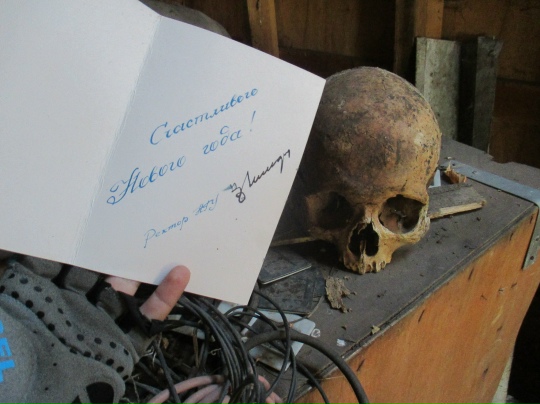 Счастливого
Нового года!
Ректор